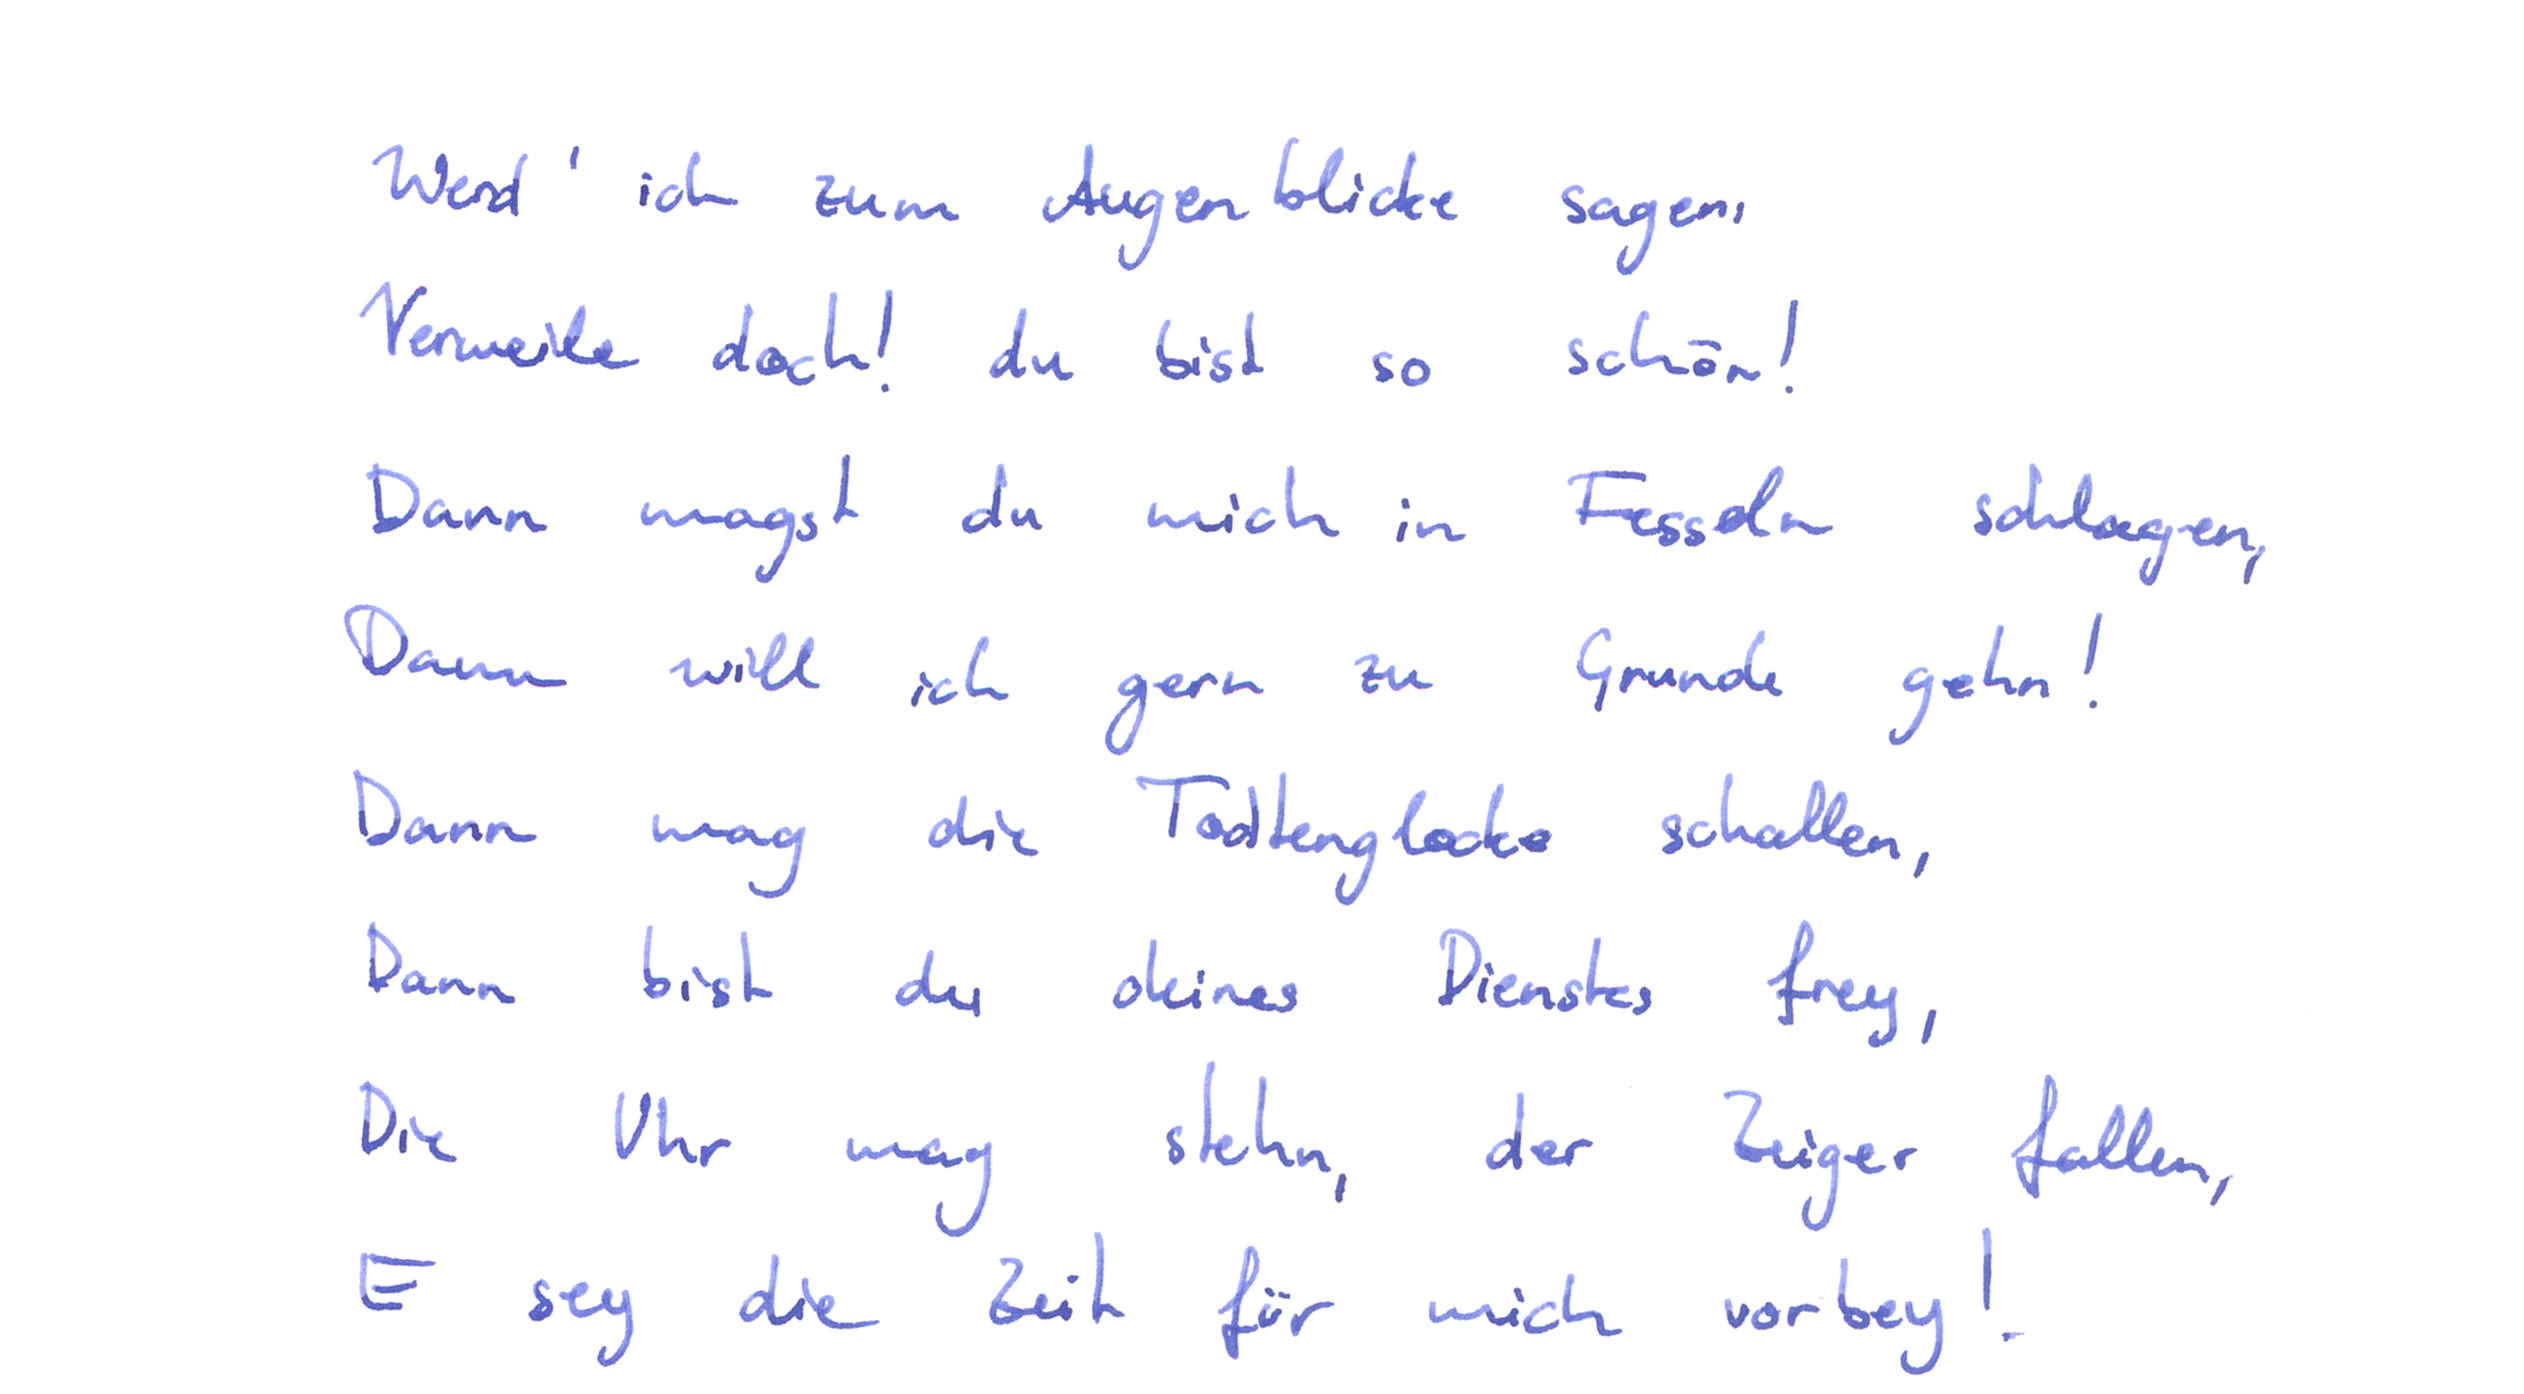 Werd' ich zum Augenblicke sagen,
Verweile doch! du bist so schön!
Dann magst du mich in Fesseln schlagen,
Dann will ich gern zu Grunde gehn!
Dann mag die Todtenglocke schallen,
Dann bist du deines Dienstes frey,
Die Uhr mag stehn, der Zeiger fallen,
E sey die Zeit für mich vorbey!